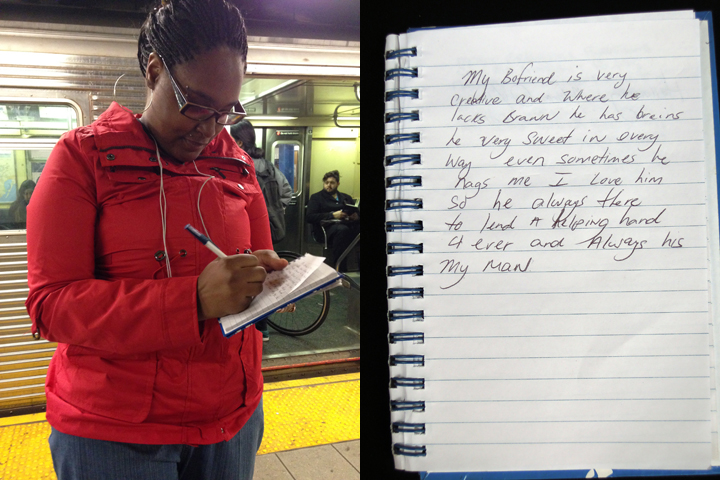 My Bofriend is very
creative and where he
lacks Brawn he has brains
he very sweet in every
way even sometimes he
nags me I Love him
so he always there
to lend A helping hand
4 ever and Always his
my man